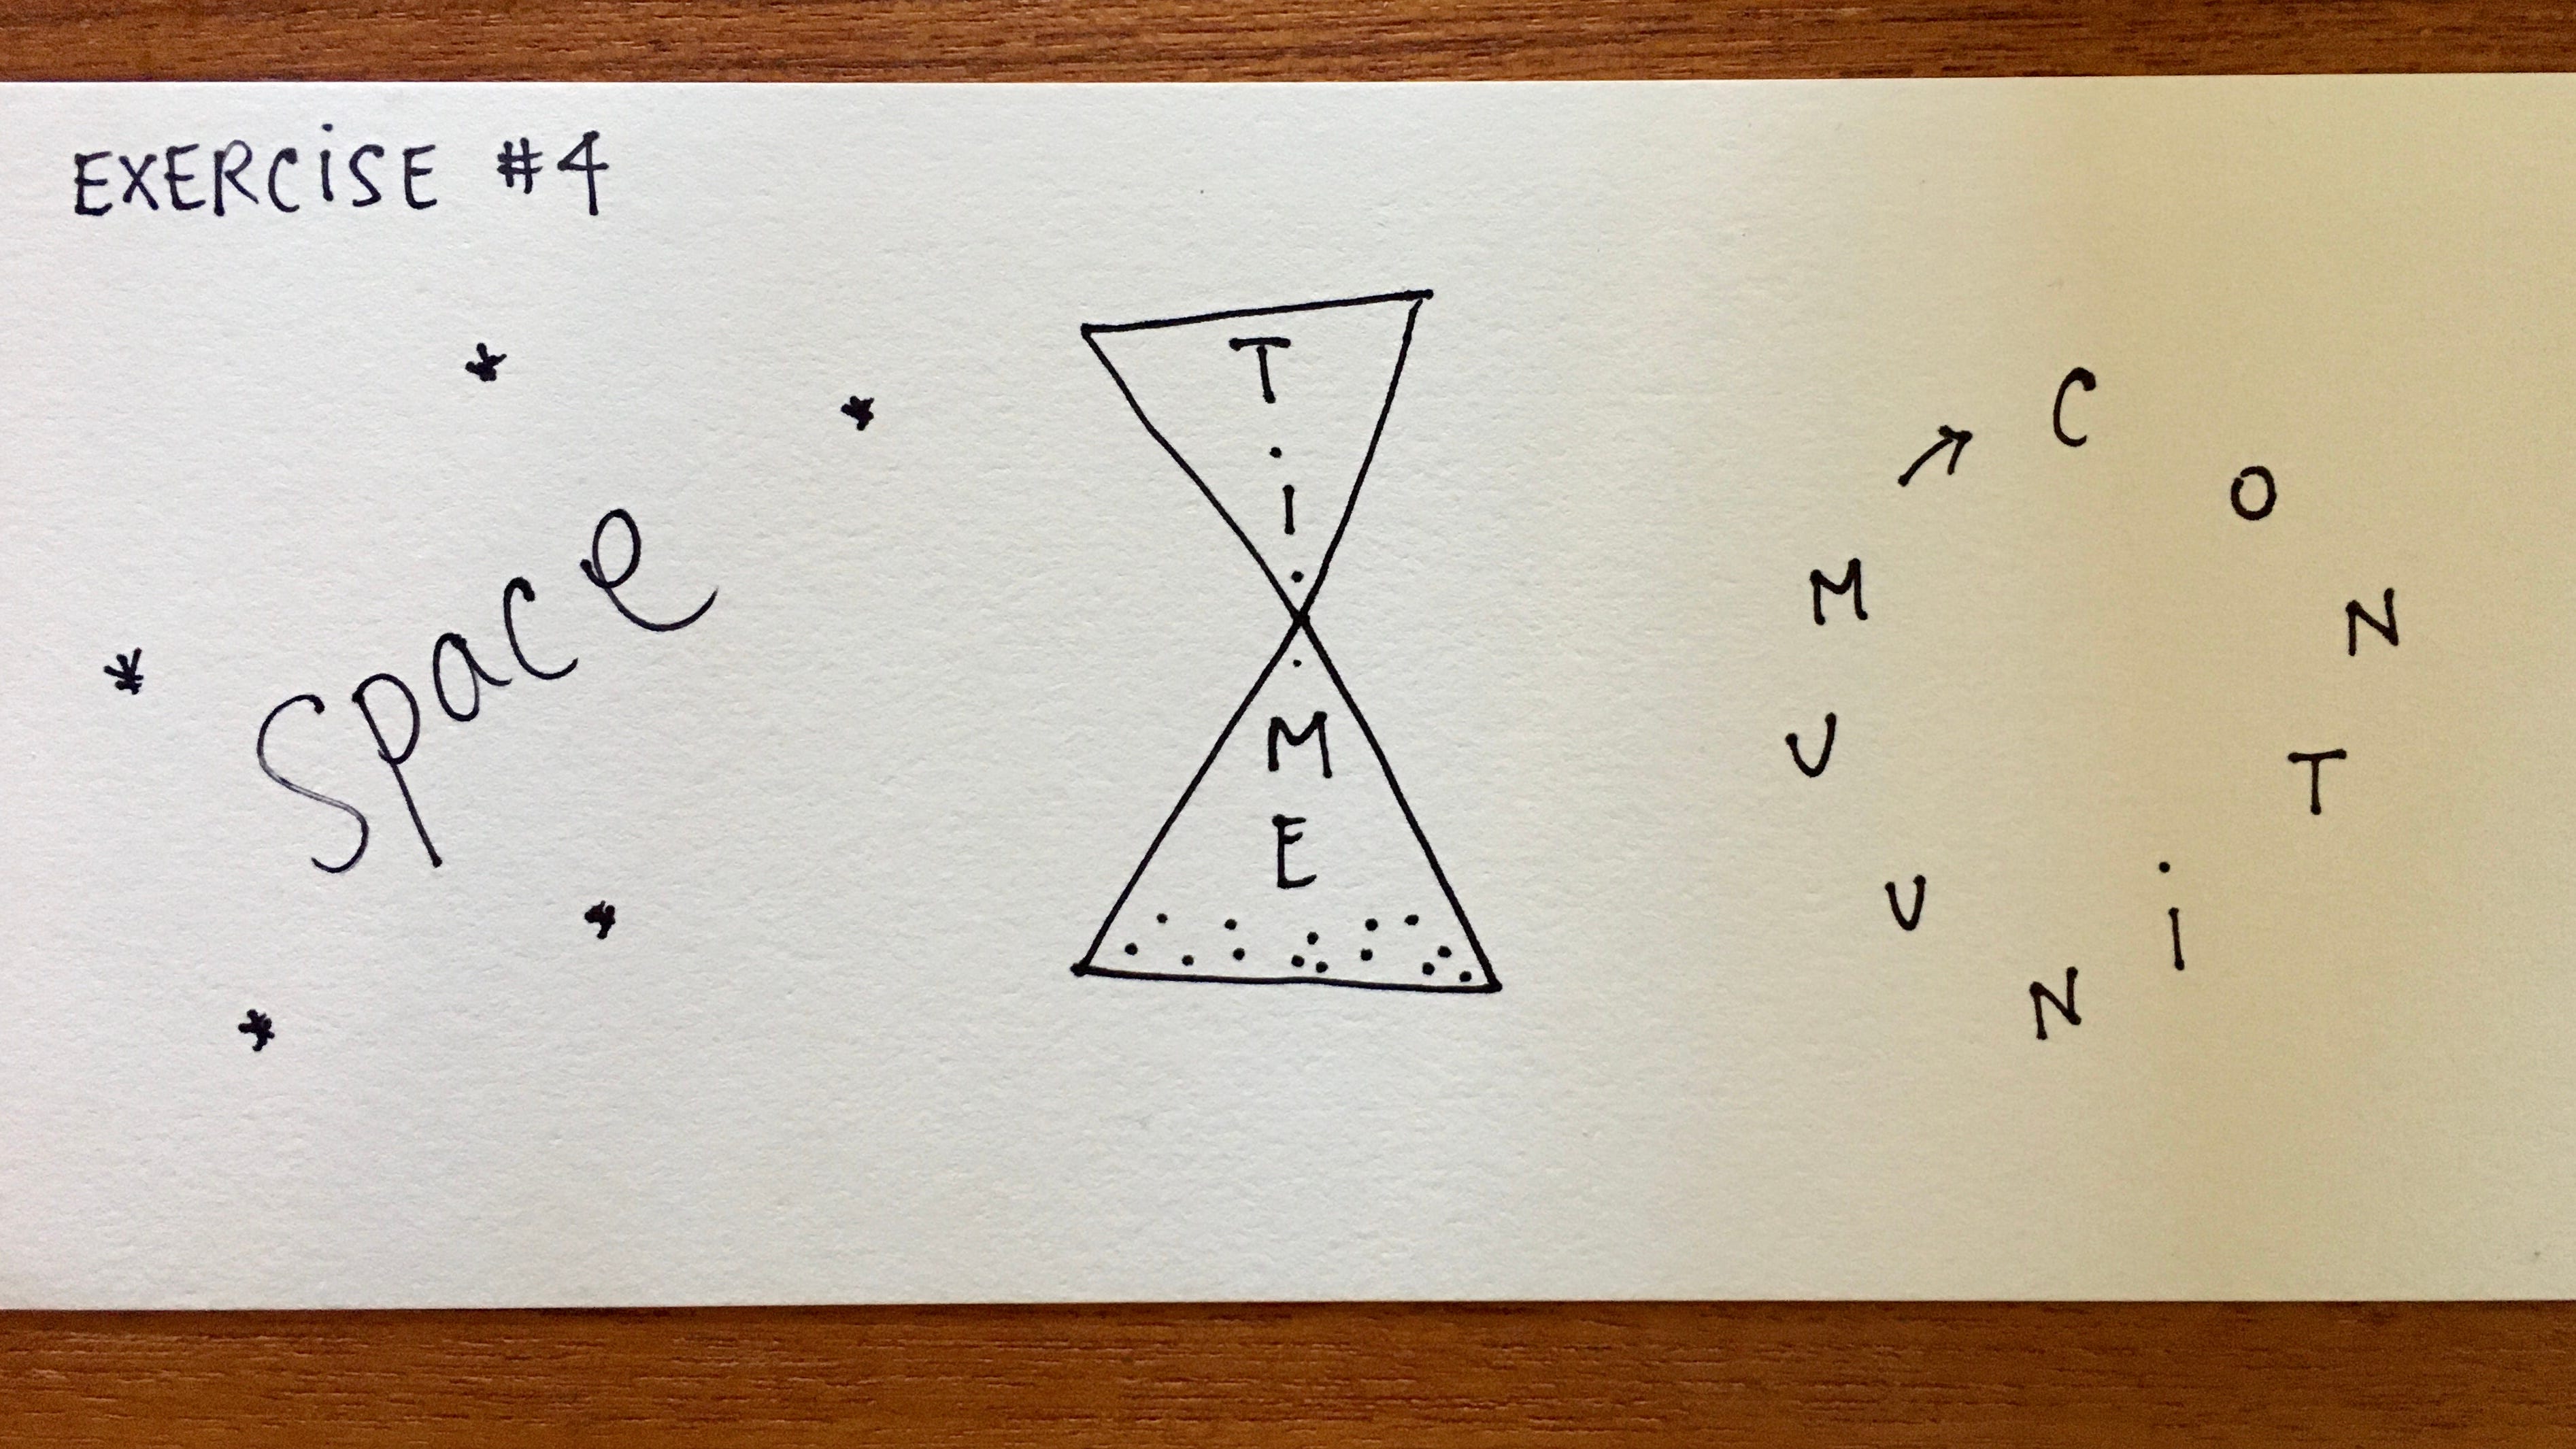 EXERCiSE #4
Space
TiME
CONTiNUUM